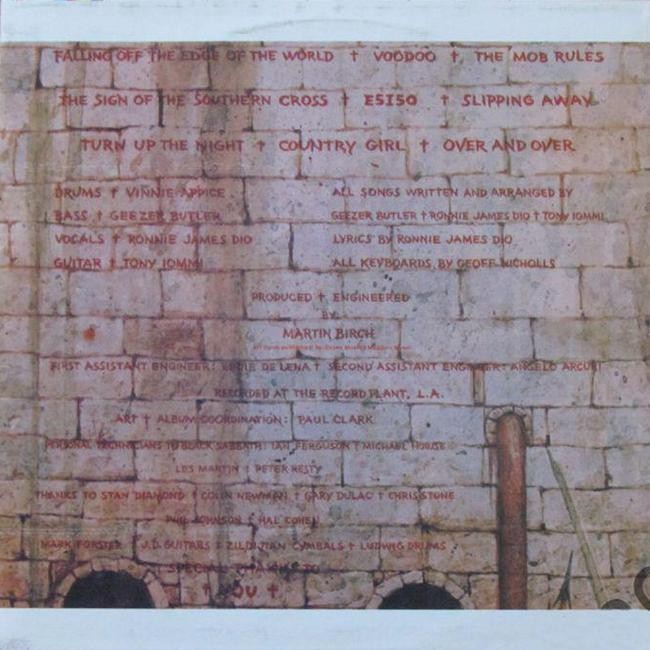 FALLING OFF THE EDGE OF THE WORLD † VOODOO † THE MOB RULES
THE SIGN OF THE SOUTHERN CROSS † E5150 † SLIPPING AWAY
TURN UP THE NIGHT † COUNTRY GIRL † OVER AND OVER
DRUMS † VINNIE APPICE
BASS † GEEZER BUTLER
VOCALS † RONNIE JAMES DIO
GUITAR † TONY IOMMI
ALL SONGS WRITTEN AND ARRANGED BY
GEEZER BUTLER † RONNIE JAMES DIO † TONY IOMMI
LYRICS BY RONNIE JAMES DIO
ALL KEYBOARDS BY GEOFF NICHOLLS
PRODUCED † ENGINEERED
BY
MARTIN BIRCH
FIRST ASSISTANT ENGINEER: EDDIE DELENA † SECOND ASSISTANT ENGINEER: ANGELO ARCURI
RECORDED AT THE RECORD PLANT, L.A.
ART † ALBUM COORDINATION: PAUL CLARK
PERSONAL TECHNICIANS TO BLACK SABBATH: IAN FERGUSON † MICHAEL HOWSE
LES MARTIN † PETER RESTY
THANKS TO STAN DIAMOND † COLIN NEWMAN † GARY DULAC † CHRIS STONE
PHIL JOHNSON † HAL COHEN
MARK FORSTER † J.D. GUITARS † ZILDJIAN CYMBALS † LUDWIG DRUMS
SPECIAL THANKS TO
† YOU †